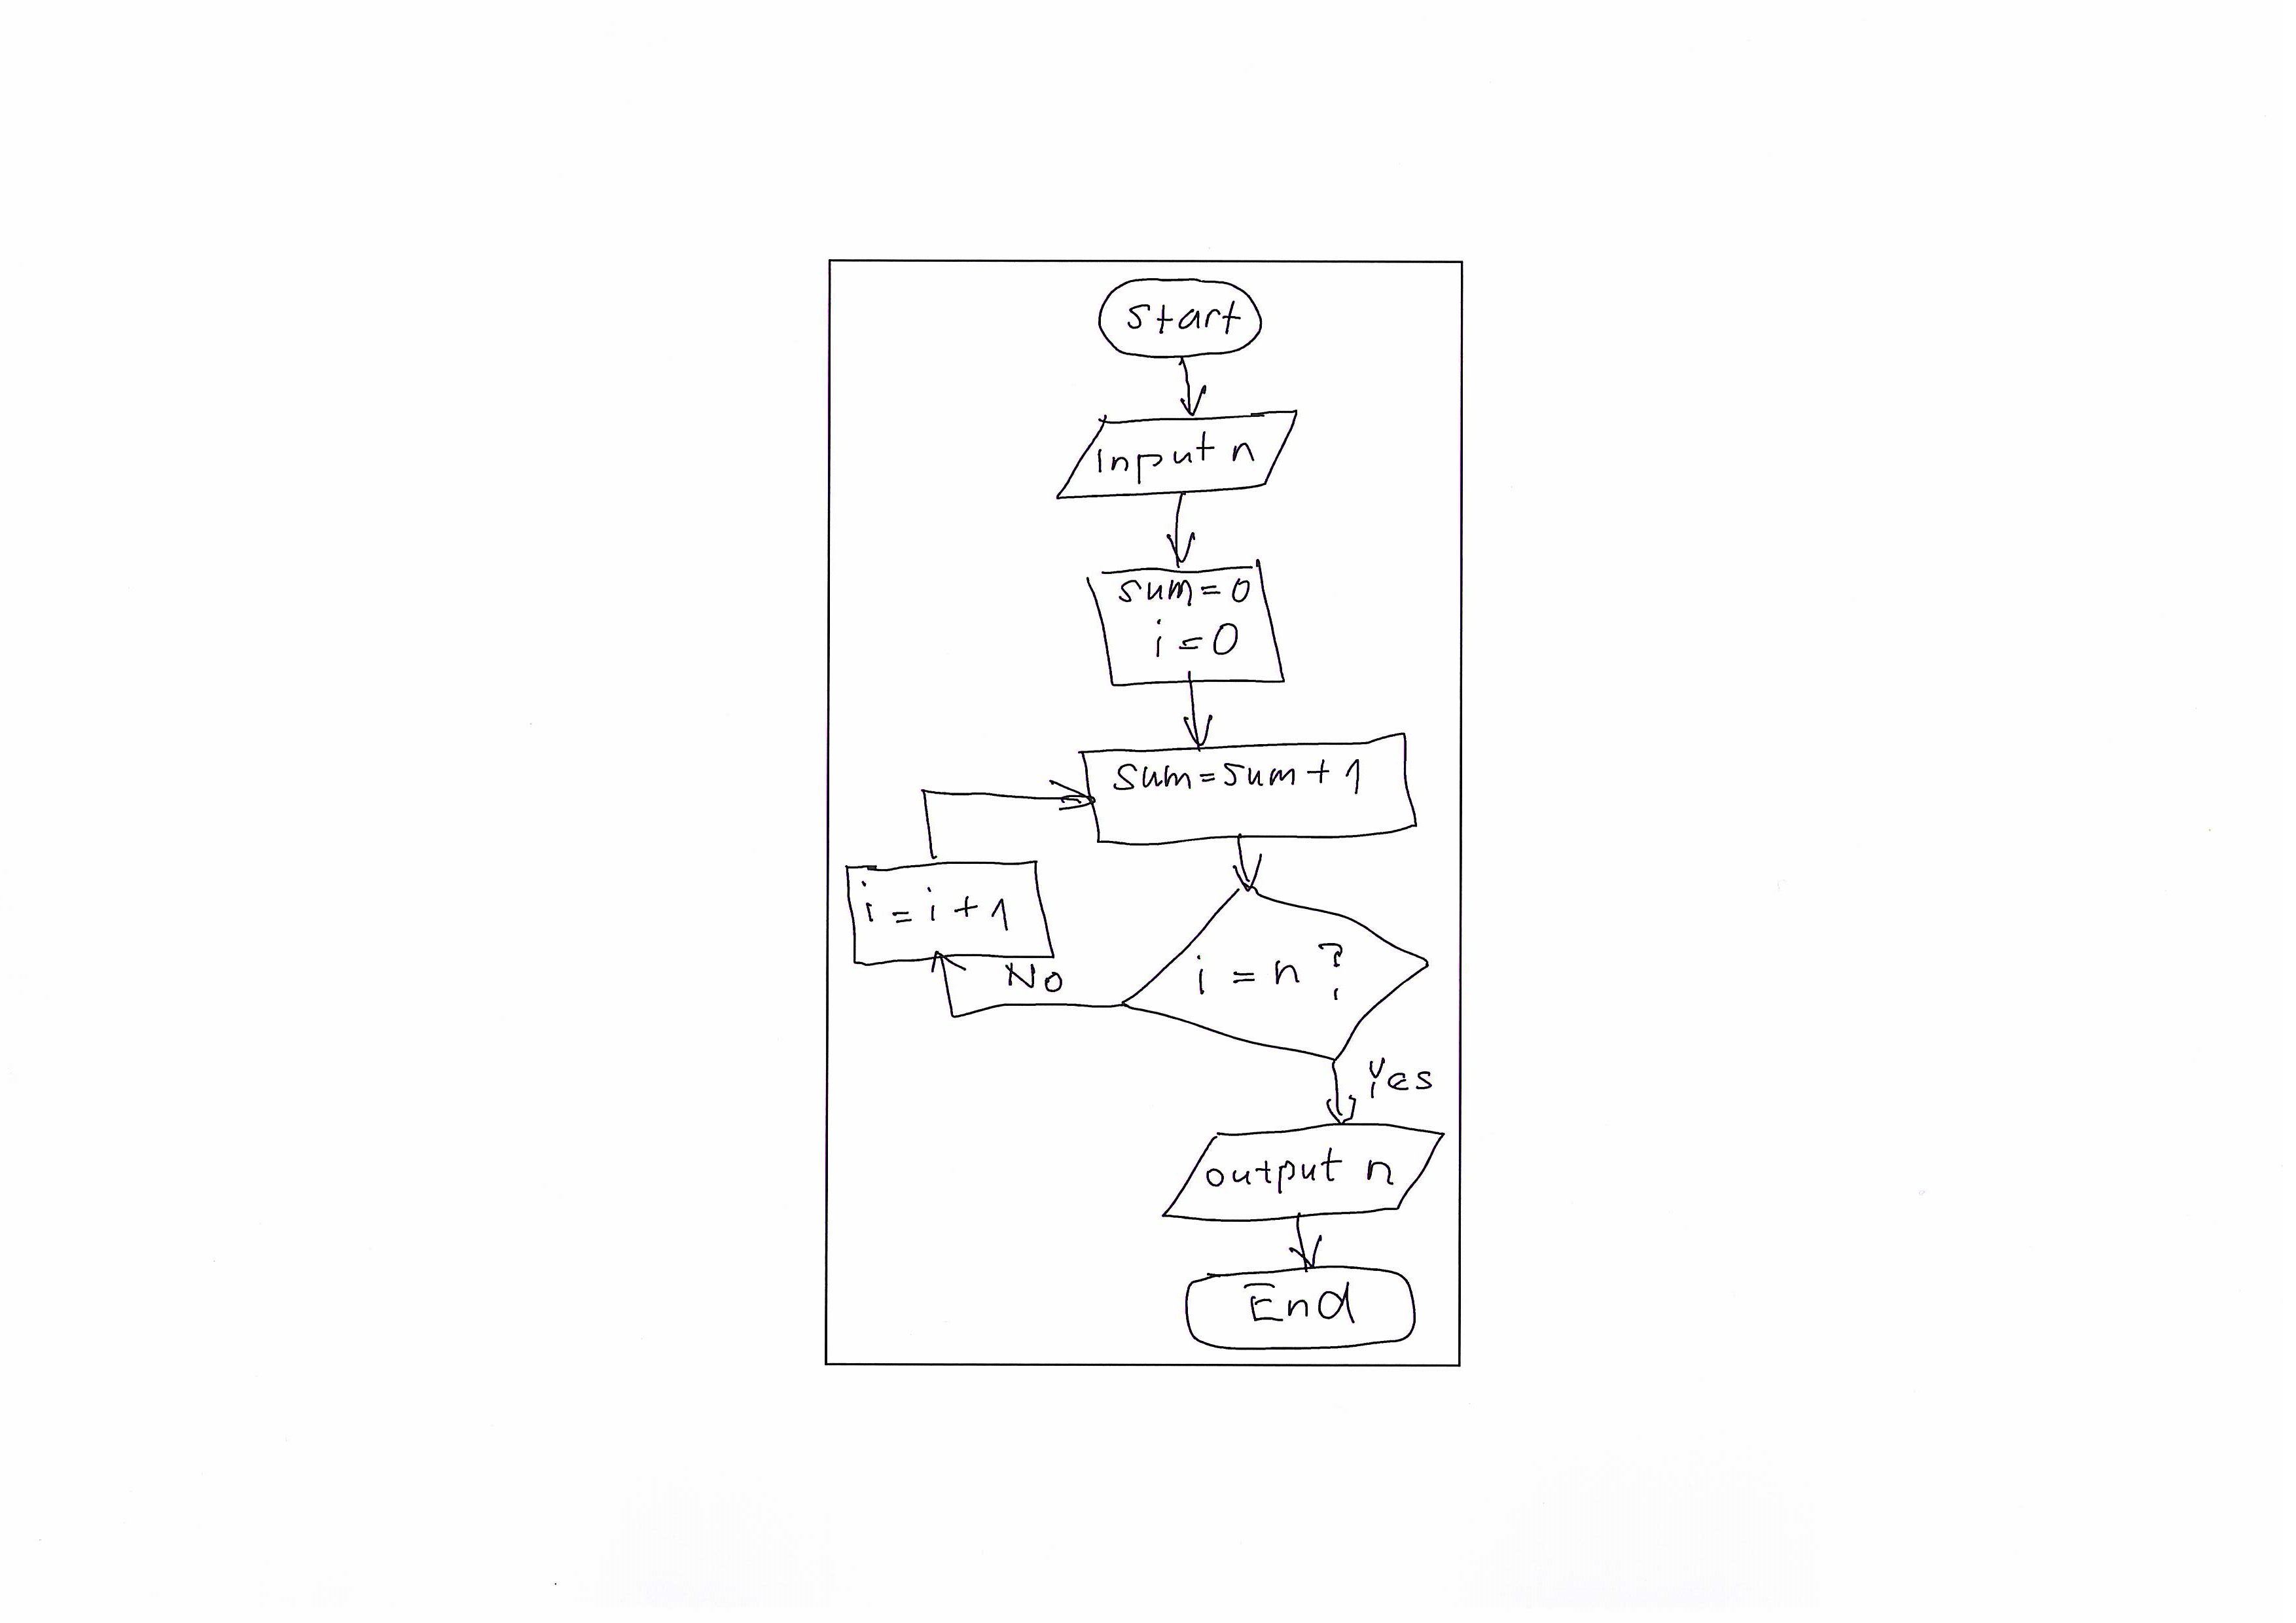 Start
Input n
sum=0
i=0
sum=sum+1
i=i+1
No
i=n?
Yes
output n
End